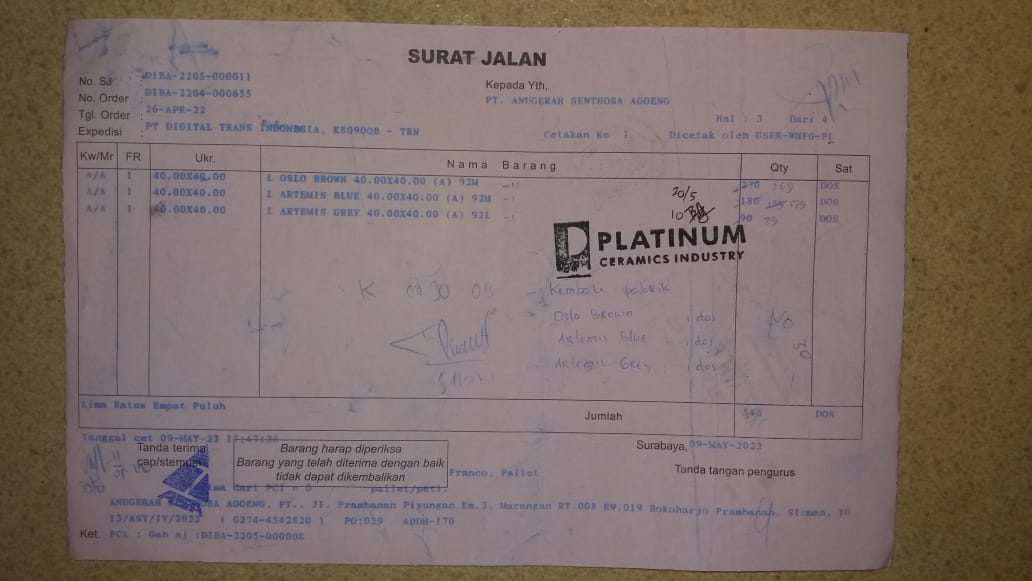 SURAT JALAN
No. SJ : DIBA-2205-000011
No. Order : DIBA-2204-000655
Tgl. Order : 26-APR-22
Expedisi : PT DIGITAL TRANS INDONESIA, K8090OB - TRN
Kepada Yth,
PT. ANUGERAH SENTHOSA AGOENG
Hal : 3 Dari 4
Cetakan ke 1 Dicetak oleh USER-WHFG-P1
Kw/Mr FR Ukr. Nama Barang Qty Sat
A/A 1 40.00X40.00 L OSLO BROWN 40.00X40.00 (A) 92M -1 270 269 DOS
A/A 1 40.00X40.00 L ARTEMIS BLUE 40.00X40.00 (A) 92M -1 180 179 DOS
A/A 1 40.00X40.00 L ARTEMIS GREY 40.00X40.00 (A) 92L -1 90 89 DOS
20/5
10
PLATINUM
CERAMICS INDUSTRY
Kembali pabrik
Oslo Brown 1 dos
Artemis Blue 1 dos
Artemis Grey 1 dos
Lima Ratus Empat Puluh
Jumlah 540 DOS
Tanggal cet 09-MAY-22 17:47:26
Surabaya, 09-MAY-2022
Tanda terima
cap/stempel
Barang harap diperiksa
Barang yang telah diterima dengan baik
tidak dapat dikembalikan
Franco, Pallet
Tanda tangan pengurus
dari PCI = 0 pallet/peti.
ANUGERAH SENTHOSA AGOENG, PT., Jl. Prambanan Piyungan Km.3, Marangan RT.008 RW.019 Bokoharjo Prambanan, Sleman, YO
13/AST/IV/2022 ( 0274-4542820 ) PO:029 ADDH-170
Ket. PCL : Gab sj :DIBA-2205-000008